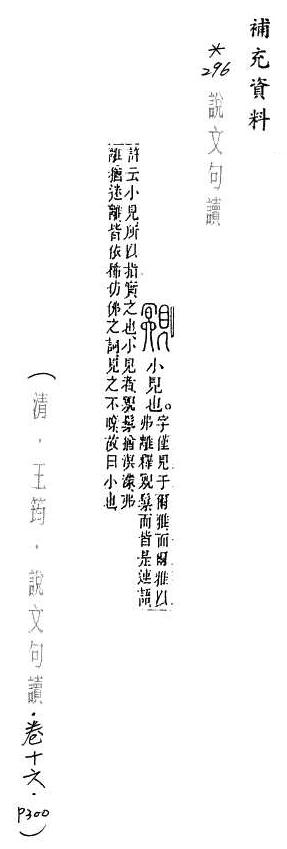 補充資料
*296 說文句讀
覭 小見也。
字僅見于爾雅而爾雅以
弗離釋覭髳而皆是連語
許云小見所以指質之也小見者覭髳猶溟濛弗
離猶迷離皆依稀仿佛之詞見之不瞭故曰小也
(清．王筠．說文句讀．卷十六．P300)